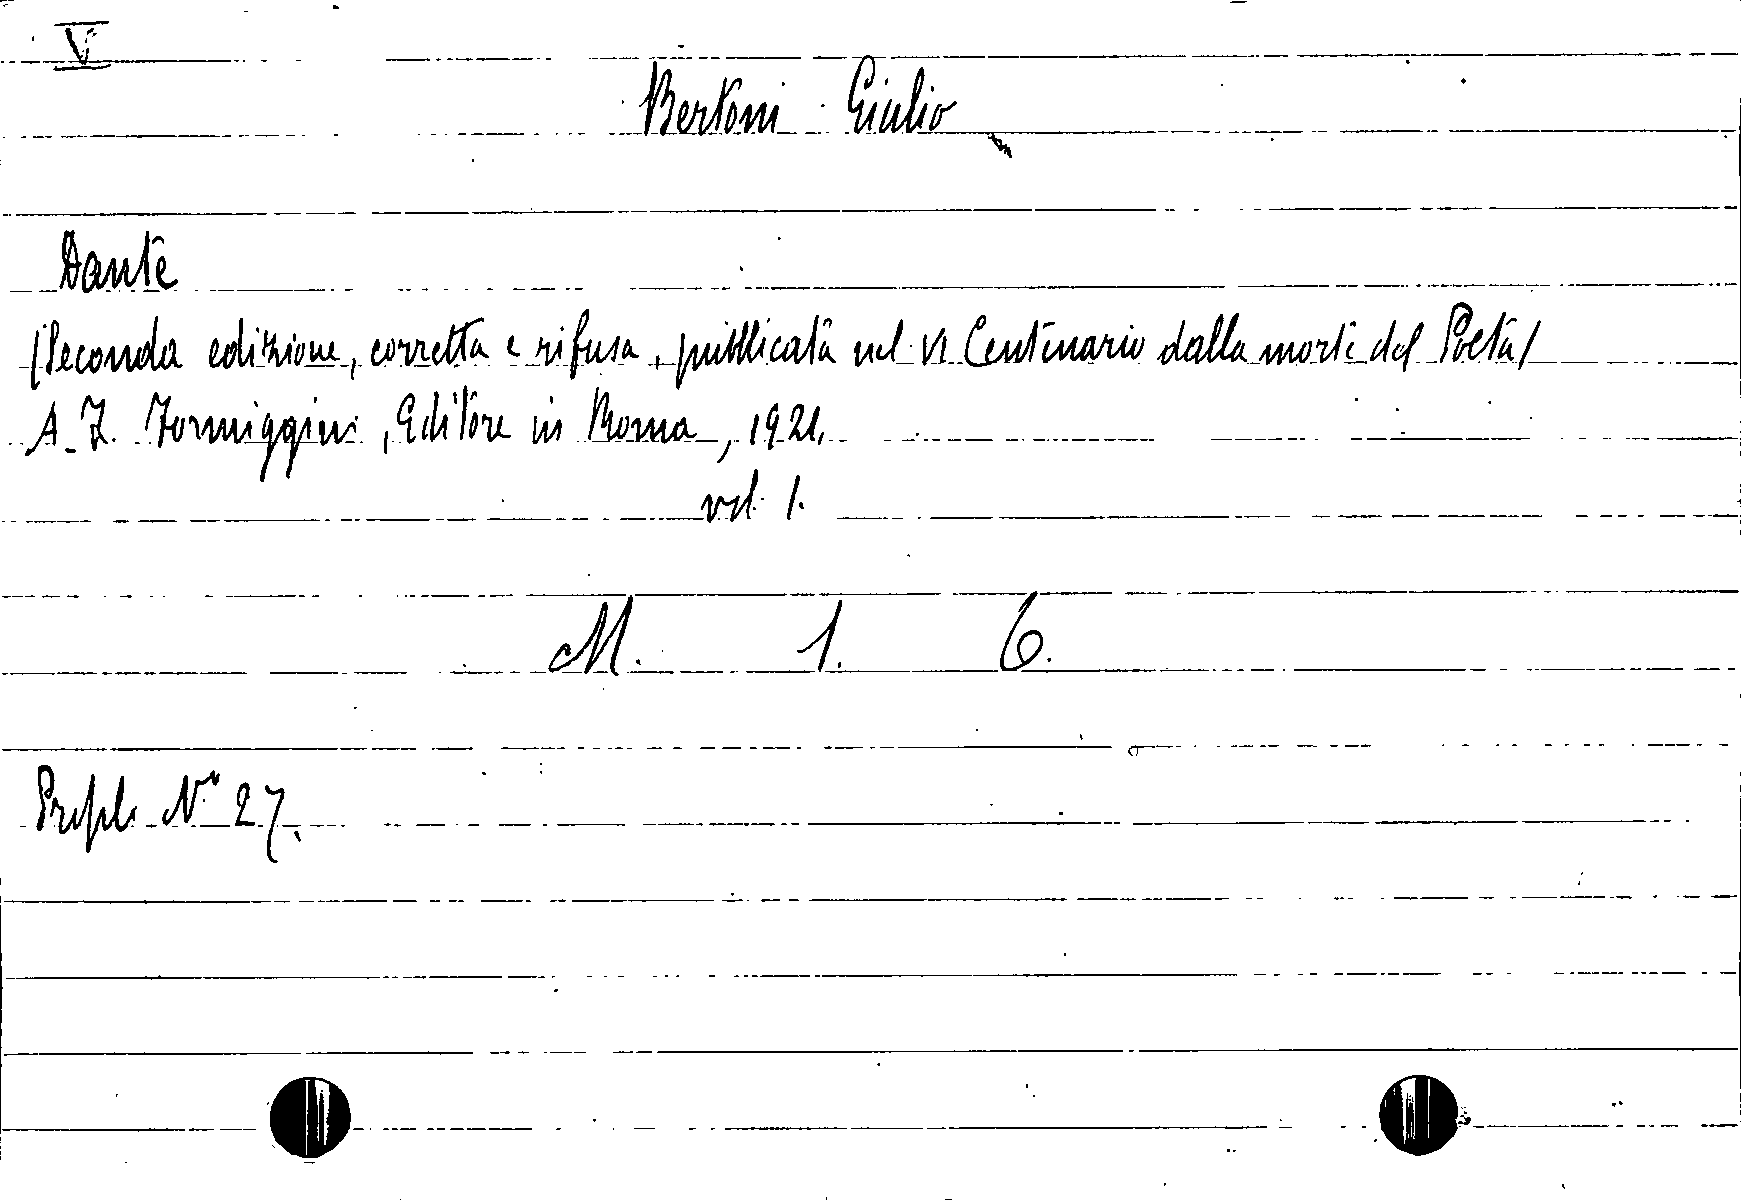 V
Bertoni Giulio
Dante
(Seconda edizione, corretta e rifusa, pubblicata nel VI Centenario dalla morte del Poeta)
A. F. Formiggini, Editore in Roma, 1921.
vol. 1.
M. 1. 6.
Profili N° 27.